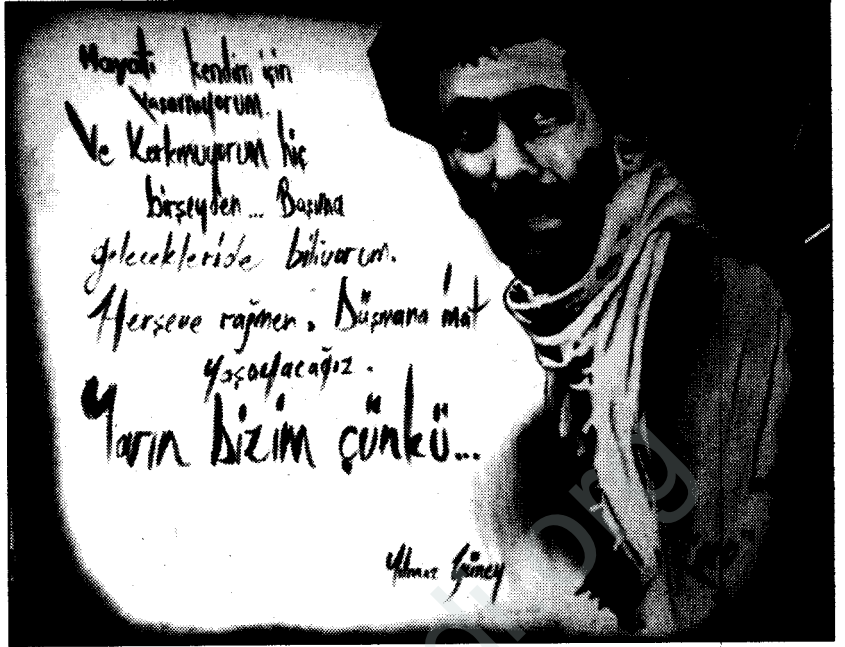 Hayatı kendim için
yaşamıyorum.
Ve Korkmuyorum hiç
birşeyden... Başıma
gelecekleride biliyorum.
Herşeye rağmen. Düşmana inat
yaşayacağız.
Yarın bizim çünkü...
Yılmaz Güney